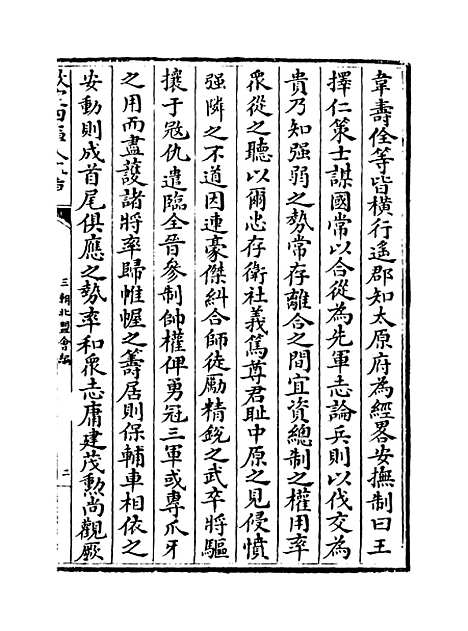 韋壽佺等皆横行遥郡知太原府為經畧安撫制曰王
擇仁策士謀國常以合從為先軍志論兵則以伐交為
貴乃知强弱之勢常存離合之間宜資總制之權用率
衆從之聽以爾忠存衛社義篤尊君耻中原之見侵憤
强隣之不道因連豪傑糾合師徒勵精鋭之武卒將驅
攘于冦仇遣臨全晉參制帥權俾勇冠三軍或專爪牙
之用而盡護諸將率歸帷幄之籌居則保輔車相依之
安動則成首尾俱應之勢率和衆志庸建茂勲尚觀厥
三朝北盟會編
二